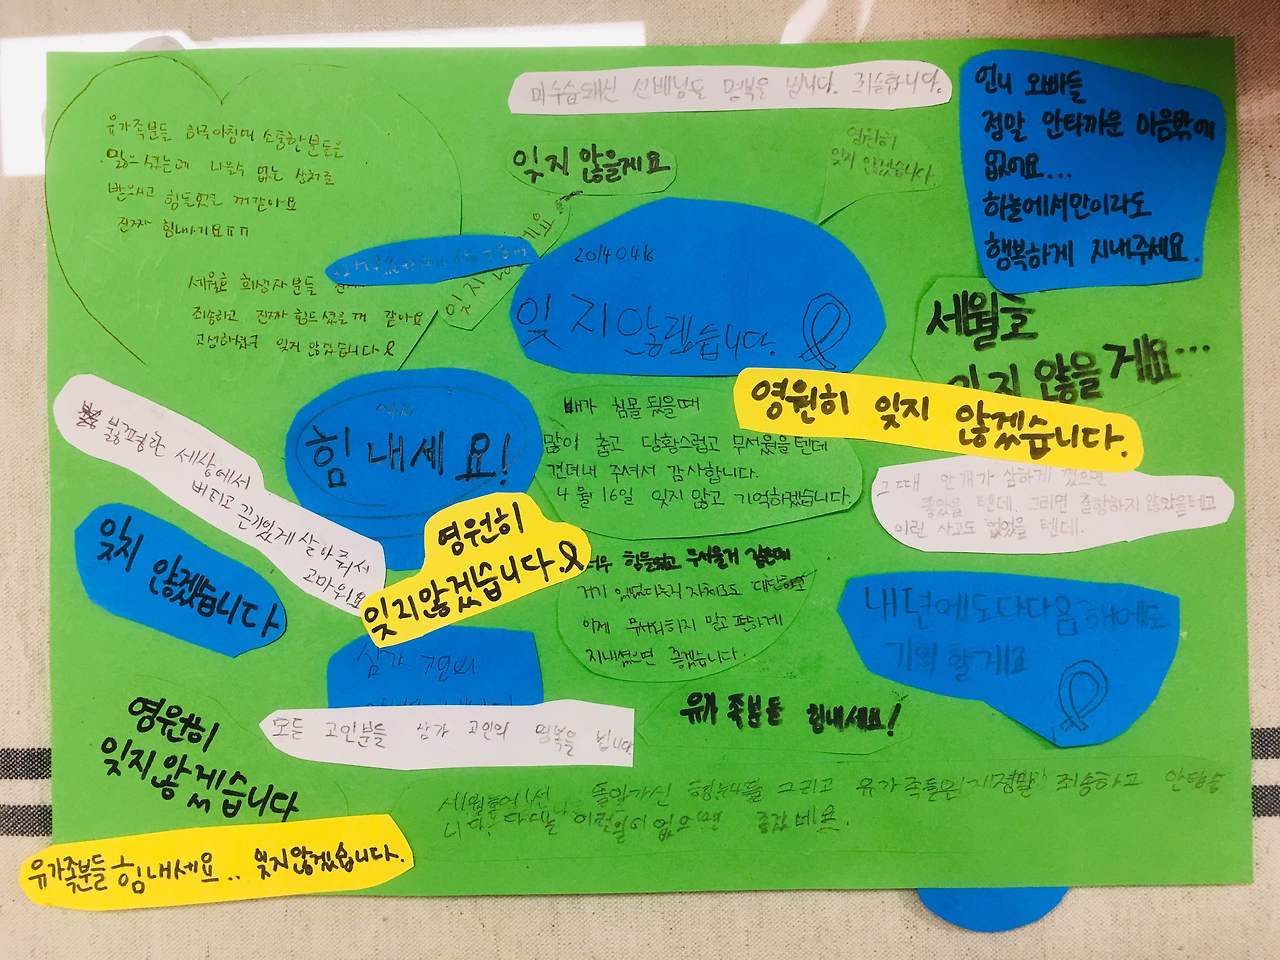 미수습돼신 선배님도 명복을 빕니다. 죄송합니다.
언니 오빠들
정말 안타까운 마음밖에
없어요...
하늘에서만이라도
행복하게 지내주세요.
유가족분들 하루아침에 소중한분들을
잃으셨는데 나을수 없는 상처를
받으시고 힘들었을 꺼같아요
진짜 힘내시기요ㅠㅠ
잊지 않을게요
영원히
잊지 않겠습니다.
세월호 희생자분들
죄송하고 진짜 힘드셨을꺼 같아요
고생하셨구 잊지 않겠습니다
20140416
잊지않겠습니다.
세월호
잊지 않을게요...
영원히 잊지 않겠습니다.
힘내세요!
배가 침몰 됬을때
많이 춥고 당황스럽고 무서웠을텐데
견뎌내 주셔서 감사합니다.
4월 16일 잊지 않고 기억하겠습니다.
그때 안개가 심하게 꼈으면
좋았을 텐데. 그러면 출항하지 않았을테고
이런 사고도 없었을 텐데.
불평한 세상에서
버티고 끈기있게 살아줘서
고마워요
잊지 않겠습니다
영원히
잊지않겠습니다.
너무 힘들었고 무서울거 같은데
거기 있었다는거 자체로도 대단하고
이제 무서워하지 말고 편하게
지내셨으면 좋겠습니다.
내년에도 다다음해에도
기억할게요
삼가 고인의
모든 고인분들 삼가 고인의 명복을 빕니다
유가족분들 힘내세요!
영원히
잊지않겠습니다
돌아가신 형누나들 그리고 유가족들 정말 죄송하고
이런일이 없으면 좋겠네요.
유가족분들 힘내세요.. 잊지않겠습니다.